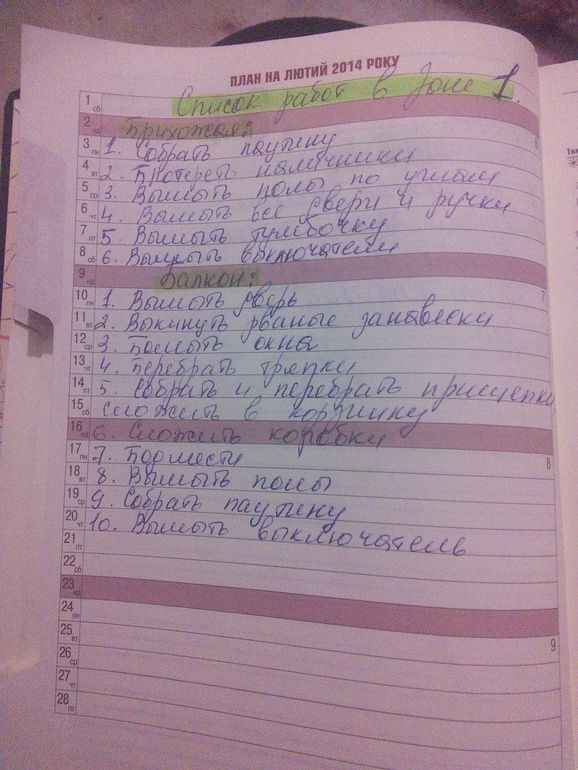 ПЛАН НА ЛЮТИЙ 2014 РОКУ
1 сб Список работ в Зоне 1.
2 нд Прихожая:
3 пн 1. Собрать паутину
4 вт 2. Протереть наличники
5 ср 3. Вымыть полы по углам
6 чт 4. Вымыть все двери и ручки
7 пт 5. Вымыть тумбочку
8 сб 6. Вымыть выключатели
9 нд Балкон:
10 пн 1. Вымыть дверь
11 вт 2. Выкинуть рваные занавески
12 ср 3. Помыть окна
13 чт 4. Перебрать тряпки
14 пт 5. Собрать и перебрать прищепки
15 сб сложить в корзинку
16 нд 6. Сложить коробки
17 пн 7. Подмести
18 вт 8. Вымыть полы
19 ср 9. Собрать паутину
20 чт 10. Вымыть выключатель
21 пт
22 сб
23 нд
24 пн
25 вт
26 ср
27 чт
28 пт
6
7
8
9